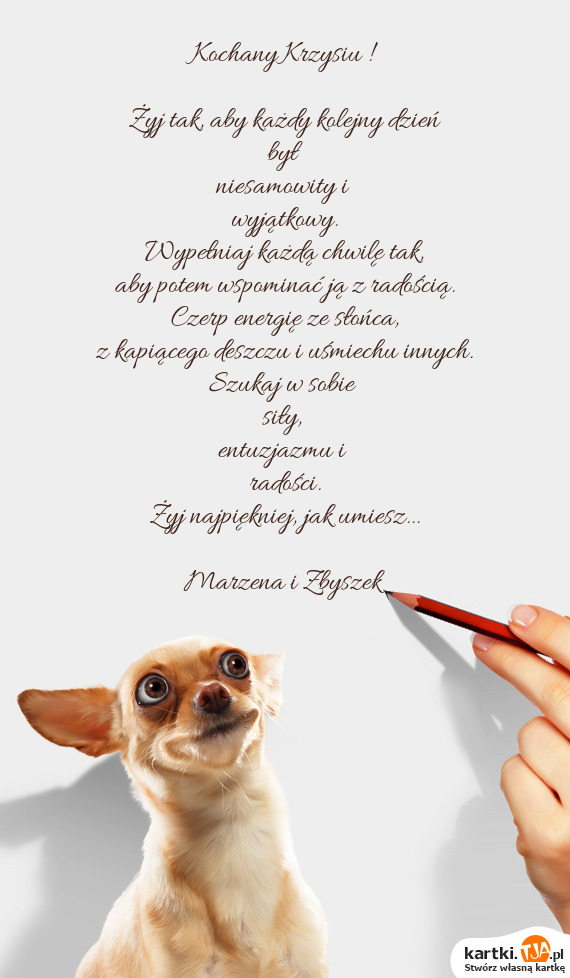 Kochany Krzysiu !
Żyj tak, aby każdy kolejny dzień
był
niesamowity i
wyjątkowy.
Wypełniaj każdą chwilę tak,
aby potem wspominać ją z radością.
Czerp energię ze słońca,
z kapiącego deszczu i uśmiechu innych.
Szukaj w sobie
siły,
entuzjazmu i
radości.
Żyj najpiękniej, jak umiesz...
Marzena i Zbyszek
kartki.TJA.pl
Stwórz własną kartkę